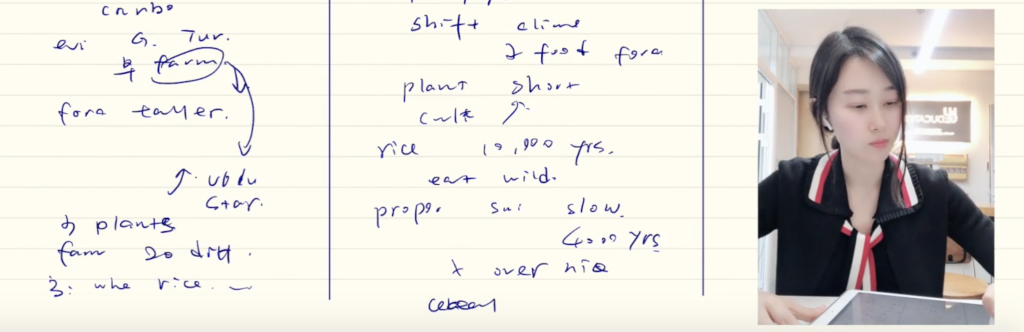 carbo
evi G. Tur.
farm
fora taller.
star.
plants
farm 20 diff.
3: whe rice.
shift clime
food fora
plant short
cult
rice 10,000 yrs.
eat wild.
proper sui slow.
4000 yrs
over
EDUCATI